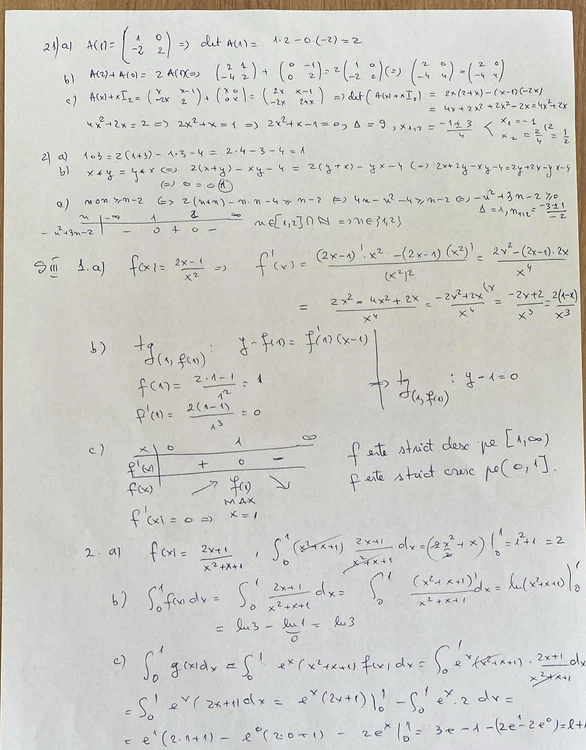 21) a) A(1) = (1 0 / -2 2) => det A(1) = 1·2 - 0·(-2) = 2
b) A(2) + A(0) = 2 A(1) (=> (2 1 / -4 2) + (0 -1 / 0 2) = 2 (1 0 / -2 2) (=> (2 0 / -4 4) = (2 0 / -4 4)
c) A(x) + xI₂ = (x x-1 / -2x 2) + (x 0 / 0 x) = (2x x-1 / -2x 2+x) => det(A(x)+xI₂) = 2x(2+x) - (x-1)(-2x)
= 4x + 2x² + 2x² - 2x = 4x² + 2x
4x² + 2x = 2 => 2x² + x = 1 => 2x² + x - 1 = 0, Δ = 9, x₁,₂ = (-1±3)/4 < x₁ = -1
x₂ = 2/4 = 1/2
2) a) 1∘3 = 2(1+3) - 1·3 - 4 = 2·4 - 3 - 4 = 1
b) x*y = y*x (=> 2(x+y) - xy - 4 = 2(y+x) - yx - 4 (=> 2x+2y-xy-4 = 2y+2x-yx-4
(=> 0 = 0
c) n∘n ≥ n-2 (=> 2(n+n) - n·n - 4 ≥ n-2 (=> 4n - n² - 4 ≥ n-2 (=> -n² + 3n - 2 ≥ 0
n | -∞ 1 2 ∞ n∈[1,2]∩ℕ => n∈{1,2} Δ = 1, n₁,₂ = (-3±1)/-2
-n²+3n-2 | - 0 + 0 -
SIII 1. a) f(x) = (2x-1)/x² => f'(x) = ((2x-1)'·x² - (2x-1)(x²)')/(x²)² = (2x² - (2x-1)·2x)/x⁴
= (2x² - 4x² + 2x)/x⁴ = (-2x² + 2x)/x⁴ (x = (-2x+2)/x³ = 2(1-x)/x³
b) tg(1, f(1)) : y - f(1) = f'(1)(x-1)
f(1) = (2·1-1)/1² = 1
=> tg(1, f(1)) : y - 1 = 0
f'(1) = 2(1-1)/1³ = 0
c) x | 0 1 ∞
f'(x) | + 0 -
f(x) | ↗ f(1) ↘
MAX
f este strict desc pe [1, ∞)
f este strict cresc pe (0, 1].
f'(x) = 0 => x = 1
2. a) f(x) = (2x+1)/(x²+x+1), ∫₀¹ (x²+x+1) (2x+1)/(x²+x+1) dx = (2x²/2 + x) |₀¹ = 1² + 1 = 2
b) ∫₀¹ f(x) dx = ∫₀¹ (2x+1)/(x²+x+1) dx = ∫₀¹ (x²+x+1)'/(x²+x+1) dx = ln(x²+x+1) |₀¹
= ln 3 - ln 1 = ln 3
0
c) ∫₀¹ g(x) dx = ∫₀¹ eˣ (x²+x+1) f(x) dx = ∫₀¹ eˣ (x²+x+1) · (2x+1)/(x²+x+1) dx
= ∫₀¹ eˣ (2x+1) dx = eˣ (2x+1) |₀¹ - ∫₀¹ eˣ · 2 dx =
= e¹ (2·1+1) - e⁰ (2·0+1) - 2eˣ |₀¹ = 3e - 1 - (2e¹ - 2e⁰) = e+1